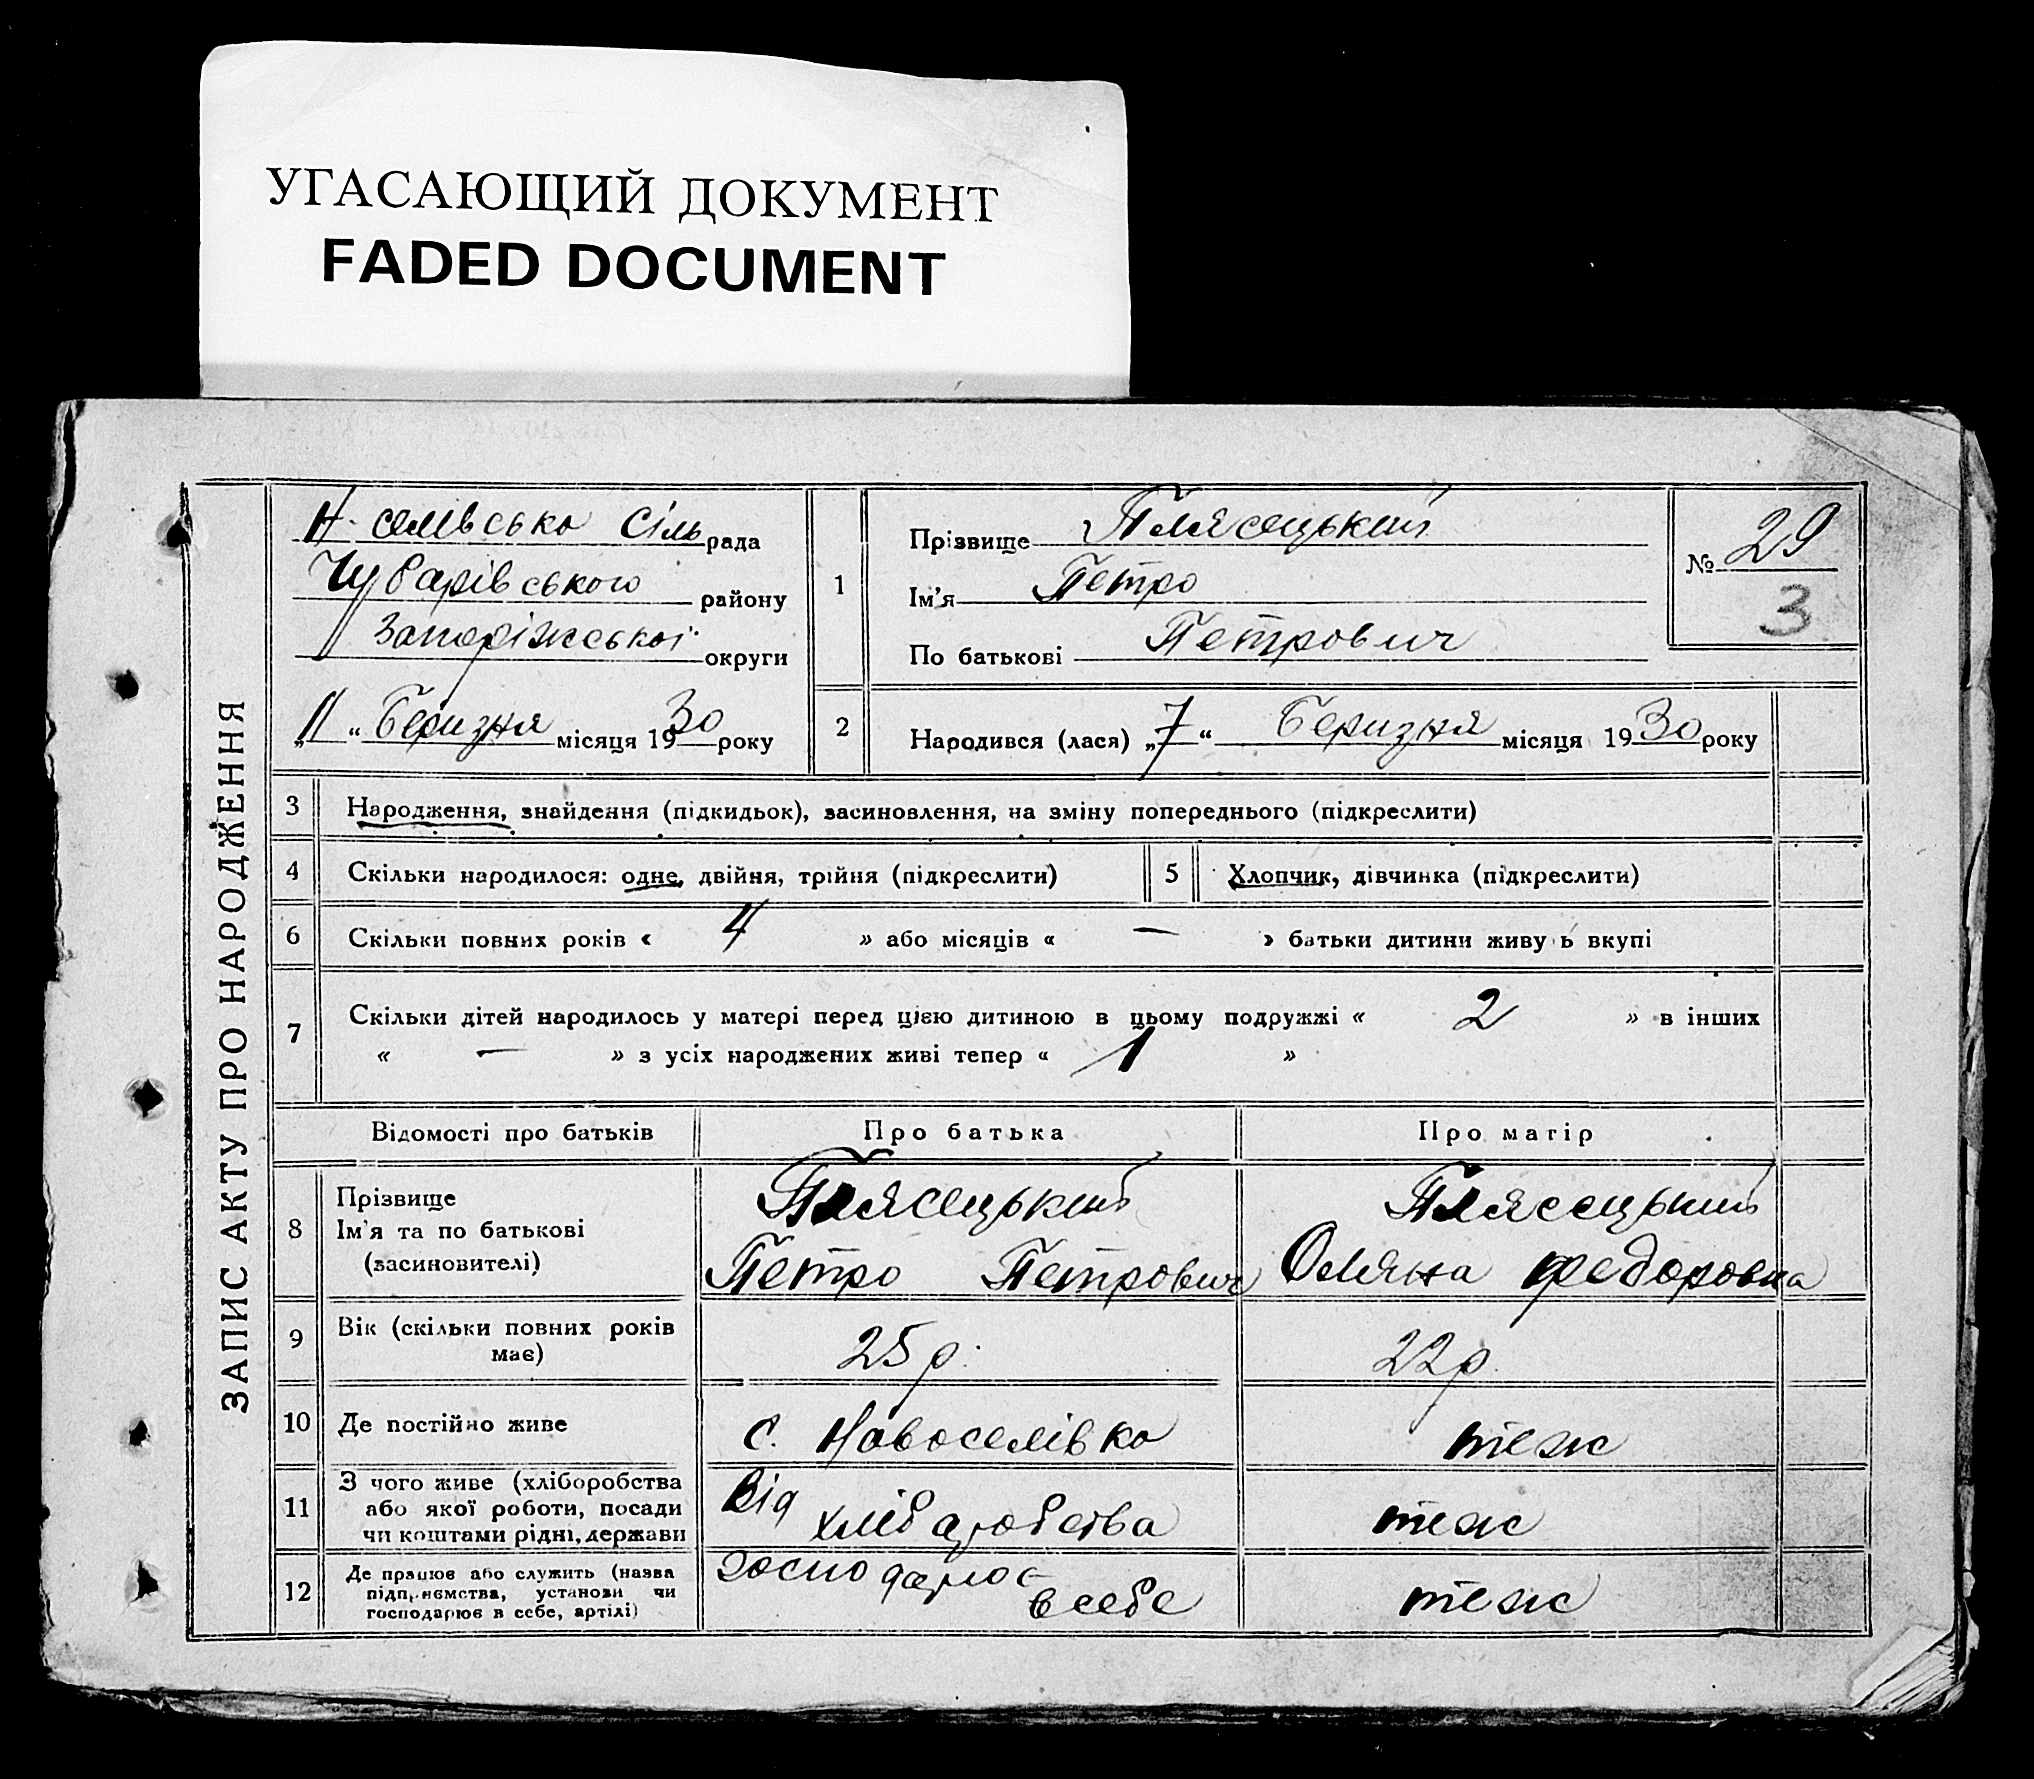 УГАСАЮЩИЙ ДОКУМЕНТ
FADED DOCUMENT
ЗАПИС АКТУ ПРО НАРОДЖЕННЯ
Н-селівська Сільрада
Чубарівського району
Запоріжської округи
„11“ Беризня місяця 1930 року
1
Прізвище Плясецький
Ім'я Петро
По батькові Петрович
№ 29
3
2
Народився (лася) „7“ Беризня місяця 1930 року
3 Народження, знайдення (підкидьок), засиновлення, на зміну попереднього (підкреслити)
4 Скільки народилося: одне, двійня, трійня (підкреслити) 5 Хлопчик, дівчинка (підкреслити)
6 Скільки повних років « 4 » або місяців « — » батьки дитини живуть вкупі
7 Скільки дітей народилось у матері перед цією дитиною в цьому подружжі « 2 » в інших
« — » з усіх народжених живі тепер « 1 »
Відомості про батьків Про батька Про матір
8 Прізвище
Ім'я та по батькові
(засиновителі)
Плясецький
Петро Петрович
Плясецький
Оляна Федоровна
9 Вік (скільки повних років
має)
25 р. 22 р.
10 Де постійно живе с. Новоселівка теж
11 З чого живе (хліборобства
або якої роботи, посади
чи коштами рідні, держави
Від
хліборобства
теж
12 Де працює або служить (назва
підприємства, установи чи
господарює в себе, артілі)
в себе
теж